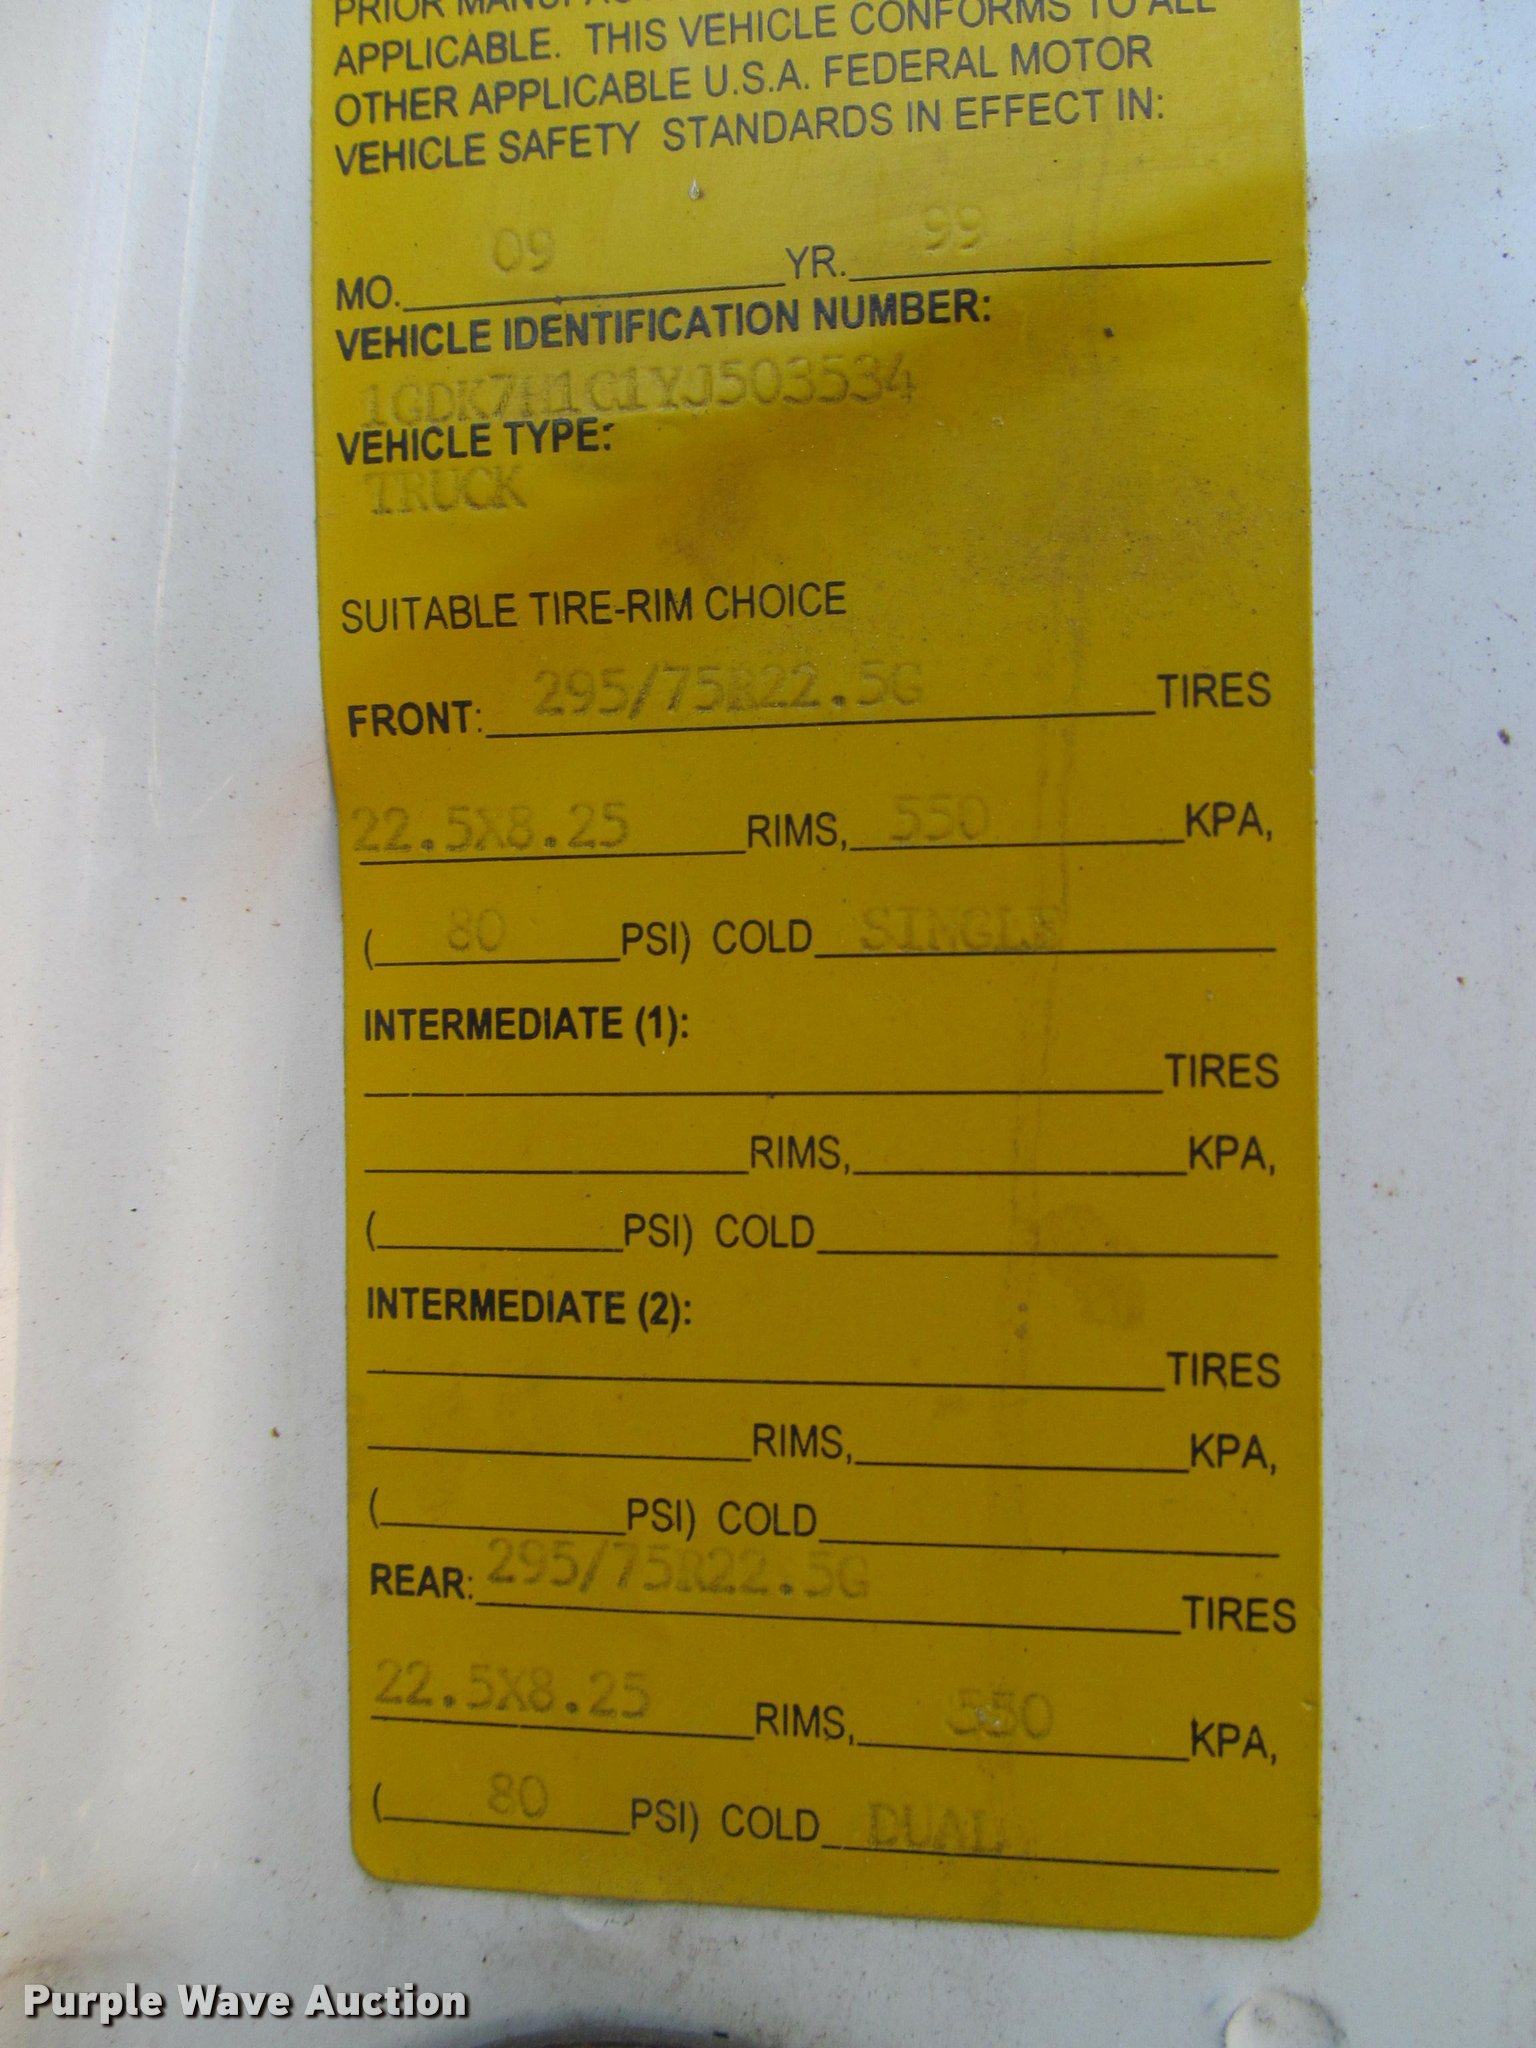 PRIOR
APPLICABLE. THIS VEHICLE CONFORMS TO ALL
OTHER APPLICABLE U.S.A. FEDERAL MOTOR
VEHICLE SAFETY STANDARDS IN EFFECT IN:
MO. 09 YR. 99
VEHICLE IDENTIFICATION NUMBER:
1GDK7H1C1YJ503534
VEHICLE TYPE:
TRUCK
SUITABLE TIRE-RIM CHOICE
FRONT: 295/75R22.5G TIRES
22.5X8.25 RIMS, 550 KPA,
( 80 PSI) COLD SINGLE
INTERMEDIATE (1):
TIRES
RIMS, KPA,
( PSI) COLD
INTERMEDIATE (2):
TIRES
RIMS, KPA,
( PSI) COLD
REAR: 295/75R22.5G TIRES
22.5X8.25 RIMS, 550 KPA,
( 80 PSI) COLD DUAL
Purple Wave Auction